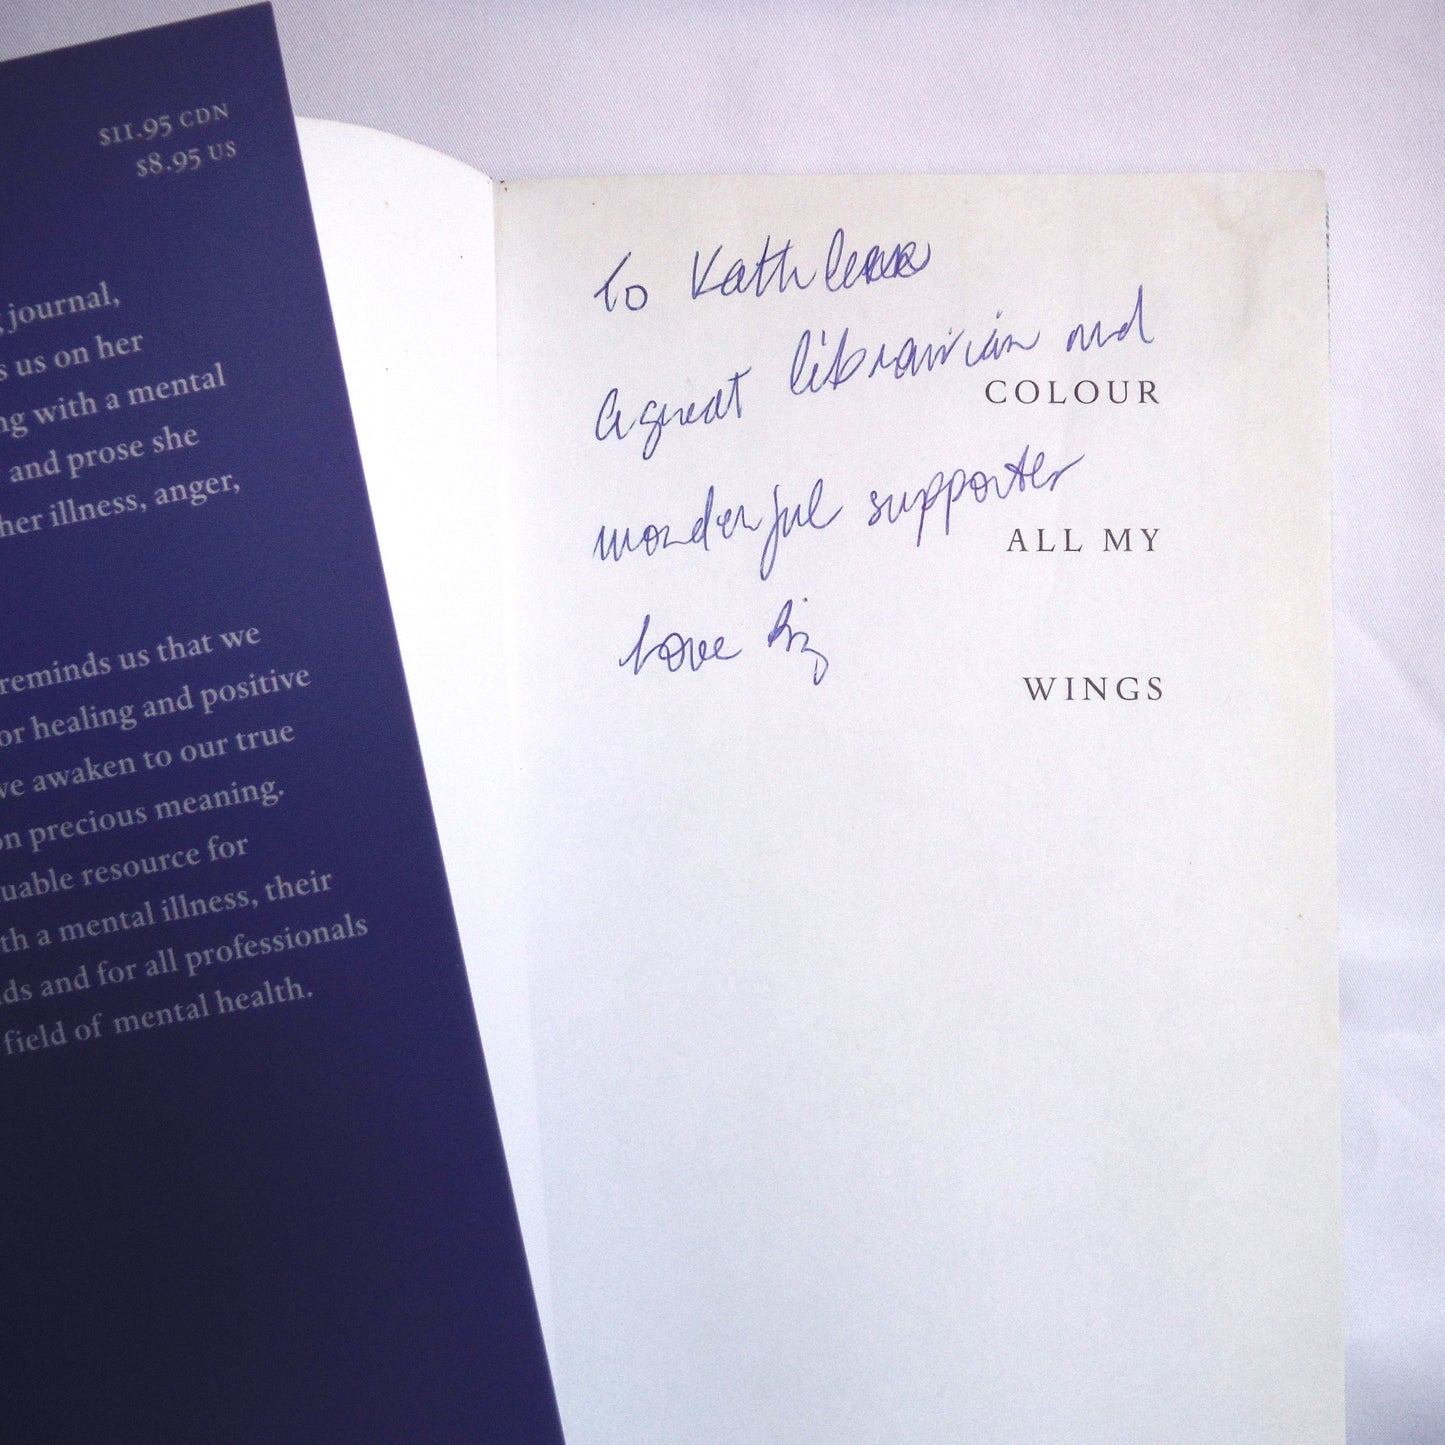 $11.95 CDN
$8.95 US
journal,
us on her
with a mental
and prose she
her illness, anger,
reminds us that we
or healing and positive
awaken to our true
on precious meaning.
resource for
a mental illness, their
and for all professionals
field of mental health.
To Kathleen
A great librarian and
wonderful supporter
Love Liz
COLOUR
ALL MY
WINGS